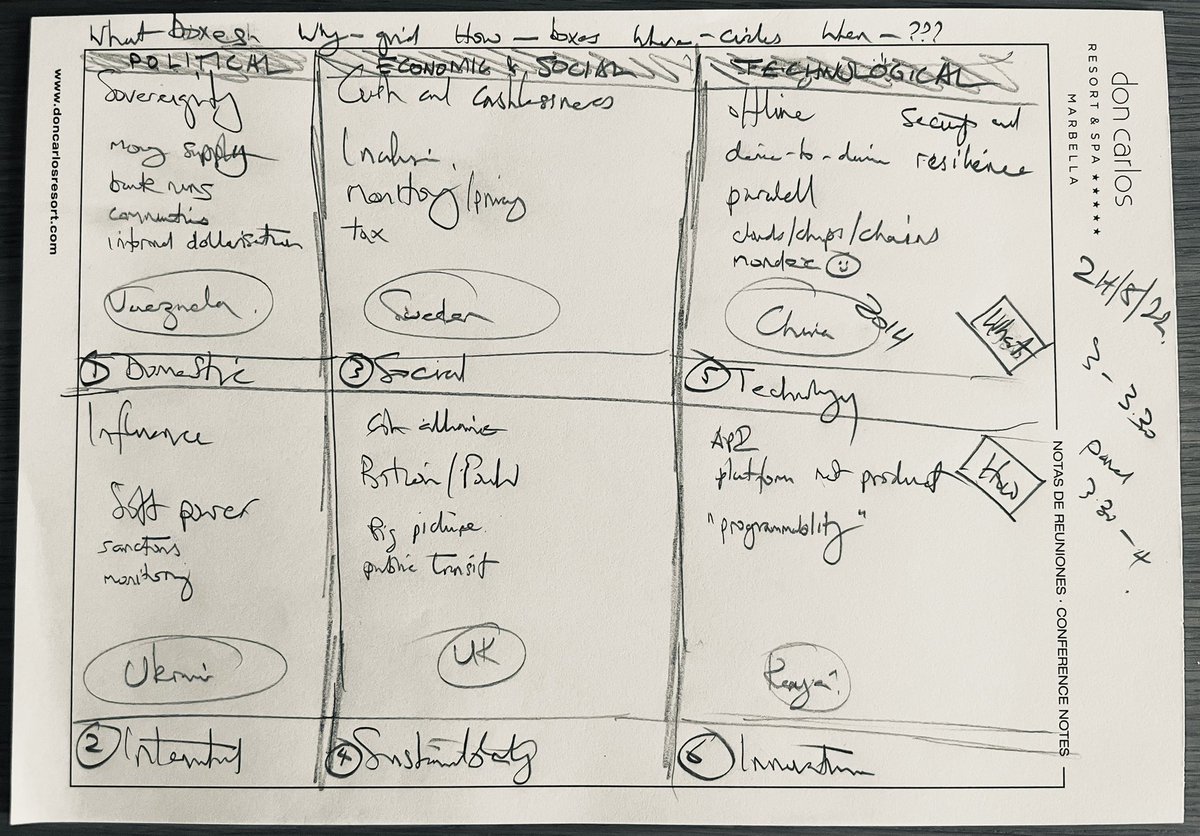 What boxes Why - grid How - boxes Where - circles When - ???
POLITICAL
Sovereignty
money supply
bank runs
communities
informal dollarisation
Venezuela
① Domestic
Influence
Soft power
sanctions
monitoring
Ukraine
② International
ECONOMIC & SOCIAL
Cash and Cashlessness
Inclusion
monitoring/privacy
tax
Sweden
③ Social
Bitcoin/
Big picture
public transit
UK
④ Sustainability
TECHNOLOGICAL
offline
Security and
device-to-device resilience
parallel
clouds/chips/chains
mondex ☺
China
2014
What
⑤ Technology
API
platform not product
How
"programmability"
Kenya?
⑥ Innovation
www.doncarlosresort.com
don carlos
RESORT & SPA ★★★★★
MARBELLA
24/5/22
3 - 3.30
panel
3.30 - 4.
NOTAS DE REUNIONES · CONFERENCE NOTES